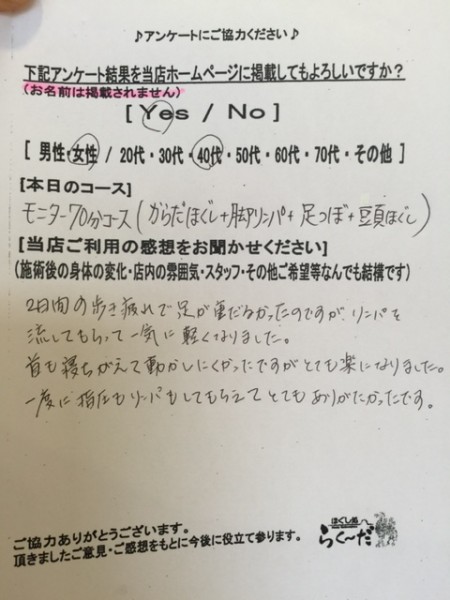 ♪アンケートにご協力ください♪
下記アンケート結果を当店ホームページに掲載してもよろしいですか？
(お名前は掲載されません)
[ Yes / No ]
[ 男性・女性 / 20代・30代・40代・50代・60代・70代・その他 ]
[本日のコース]
モニター70分コース(からだほぐし+脚リンパ+足つぼ+頭ほぐし)
[当店ご利用の感想をお聞かせください]
(施術後の身体の変化・店内の雰囲気・スタッフ・その他ご希望等なんでも結構です)
2日間の歩き疲れで足が重だるかったのですが、リンパを
流してもらって一気に軽くなりました。
首も寝ちがえて動かしにくかったですがとても楽になりました。
一度に指圧もリンパもしてもらえてとてもありがたかったです。
ご協力ありがとうございます。
頂きましたご意見・ご感想をもとに今後に役立て参ります。
ほぐし処
らく〜だ